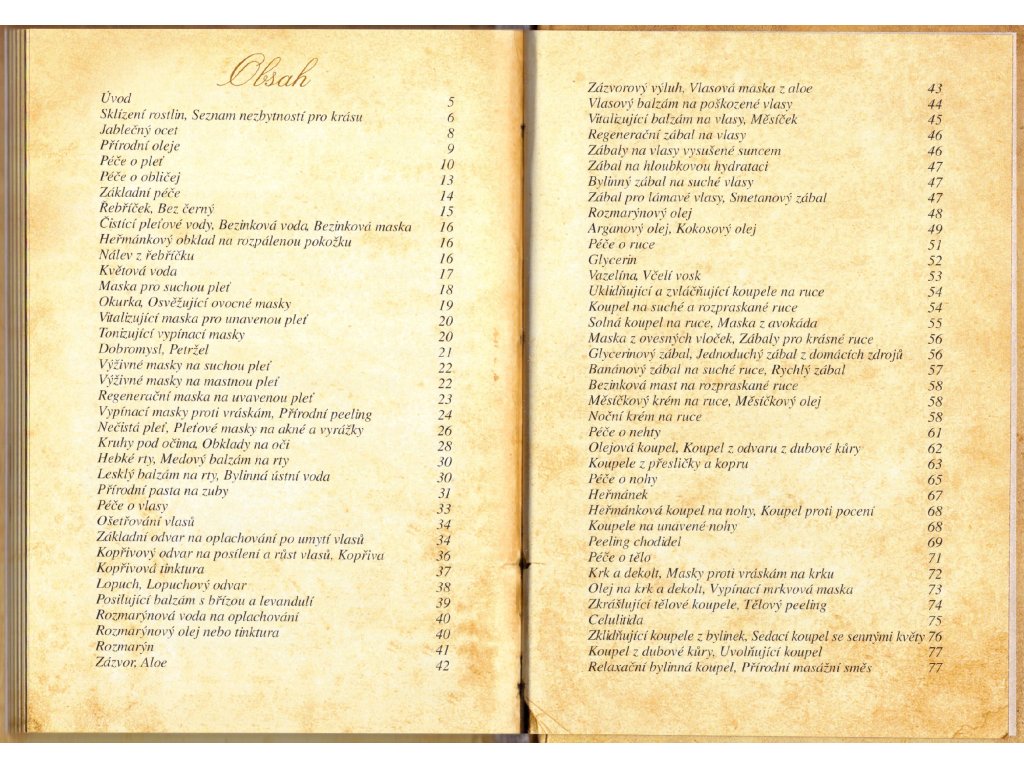 Obsah
Úvod 5
Sklízení rostlin, Seznam nezbytností pro krásu 6
Jablečný ocet 8
Přírodní oleje 9
Péče o pleť 10
Péče o obličej 13
Základní péče 14
Řebříček, Bez černý 15
Čistící pleťové vody, Bezinková voda, Bezinková maska 16
Heřmánkový obklad na rozpálenou pokožku 16
Nálev z řebříčku 16
Květová voda 17
Maska pro suchou pleť 18
Okurka, Osvěžující ovocné masky 19
Vitalizující maska pro unavenou pleť 20
Tonizující vypínací masky 20
Dobromysl, Petržel 21
Výživné masky na suchou pleť 22
Výživné masky na mastnou pleť 22
Regenerační maska na uvavenou pleť 23
Vypínací masky proti vráskám, Přírodní peeling 24
Nečistá pleť, Pleťové masky na akné a vyrážky 26
Kruhy pod očima, Obklady na oči 28
Hebké rty, Medový balzám na rty 30
Lesklý balzám na rty, Bylinná ústní voda 30
Přírodní pasta na zuby 31
Péče o vlasy 33
Ošetřování vlasů 34
Základní odvar na oplachování po umytí vlasů 34
Kopřivový odvar na posílení a růst vlasů, Kopřiva 36
Kopřivová tinktura 37
Lopuch, Lopuchový odvar 38
Posilující balzám s břízou a levandulí 39
Rozmarýnová voda na oplachování 40
Rozmarýnový olej nebo tinktura 40
Rozmarýn 41
Zázvor, Aloe 42
Zázvorový výluh, Vlasová maska z aloe 43
Vlasový balzám na poškozené vlasy 44
Vitalizující balzám na vlasy, Měsíček 45
Regenerační zábal na vlasy 46
Zábaly na vlasy vysušené suncem 46
Zábal na hloubkovou hydrataci 47
Bylinný zábal na suché vlasy 47
Zábal pro lámavé vlasy, Smetanový zábal 47
Rozmarýnový olej 48
Arganový olej, Kokosový olej 49
Péče o ruce 51
Glycerin 52
Vazelína, Včelí vosk 53
Uklidňující a zvláčňující koupele na ruce 54
Koupel na suché a rozpraskané ruce 54
Solná koupel na ruce, Maska z avokáda 55
Maska z ovesných vloček, Zábaly pro krásné ruce 56
Glycerinový zábal, Jednoduchý zábal z domácích zdrojů 56
Banánový zábal na suché ruce, Rychlý zábal 57
Bezinková mast na rozpraskané ruce 58
Měsíčkový krém na ruce, Měsíčkový olej 58
Noční krém na ruce 58
Péče o nehty 61
Olejová koupel, Koupel z odvaru z dubové kůry 62
Koupele z přesličky a kopru 63
Péče o nohy 65
Heřmánek 67
Heřmánková koupel na nohy, Koupel proti pocení 68
Koupele na unavené nohy 68
Peeling chodidel 69
Péče o tělo 71
Krk a dekolt, Masky proti vráskám na krku 72
Olej na krk a dekolt, Vypínací mrkvová maska 73
Zkrášlující tělové koupele, Tělový peeling 74
Celulitida 75
Zklidňující koupele z bylinek, Sedací koupel se sennými květy 76
Koupel z dubové kůry, Uvolňující koupel 77
Relaxační bylinná koupel, Přírodní masážní směs 77